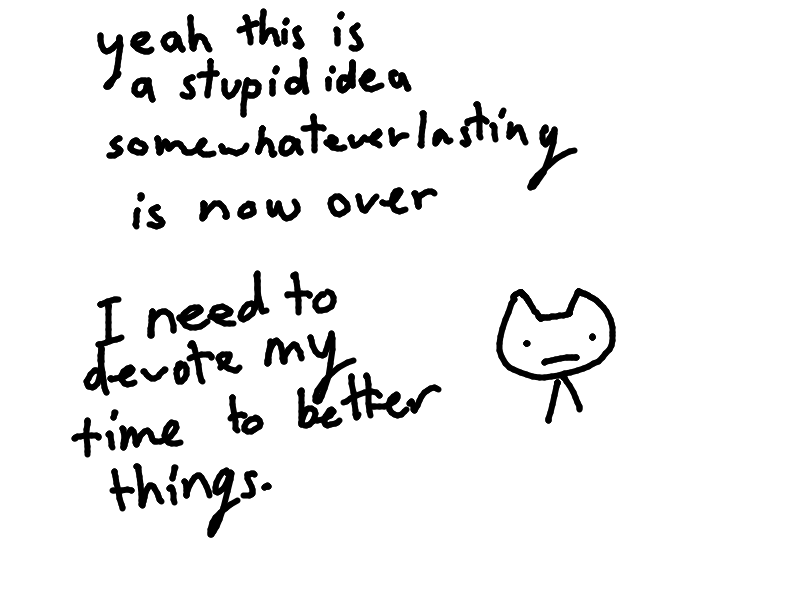 yeah this is
a stupid idea
somewhateverlasting
is now over
I need to
devote my
time to better
things.